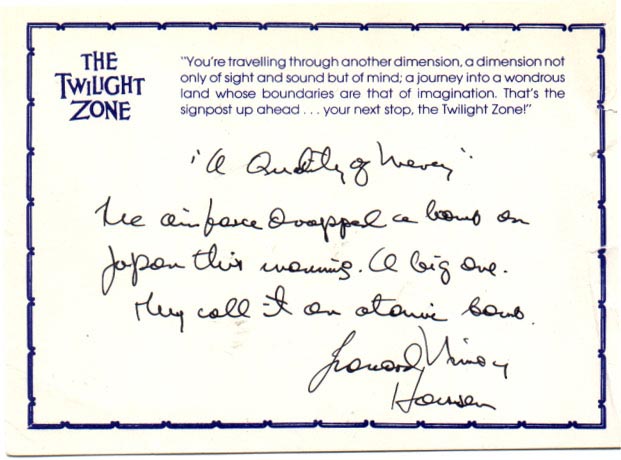 THE
TWILIGHT
ZONE
"You're travelling through another dimension, a dimension not
only of sight and sound but of mind; a journey into a wondrous
land whose boundaries are that of imagination. That's the
signpost up ahead . . . your next stop, the Twilight Zone!"
"A Quality of Mercy"
The airforce dropped a bomb on
Japan this morning. A big one.
They call it an atomic bomb.
Leonard Nimoy
Hansen